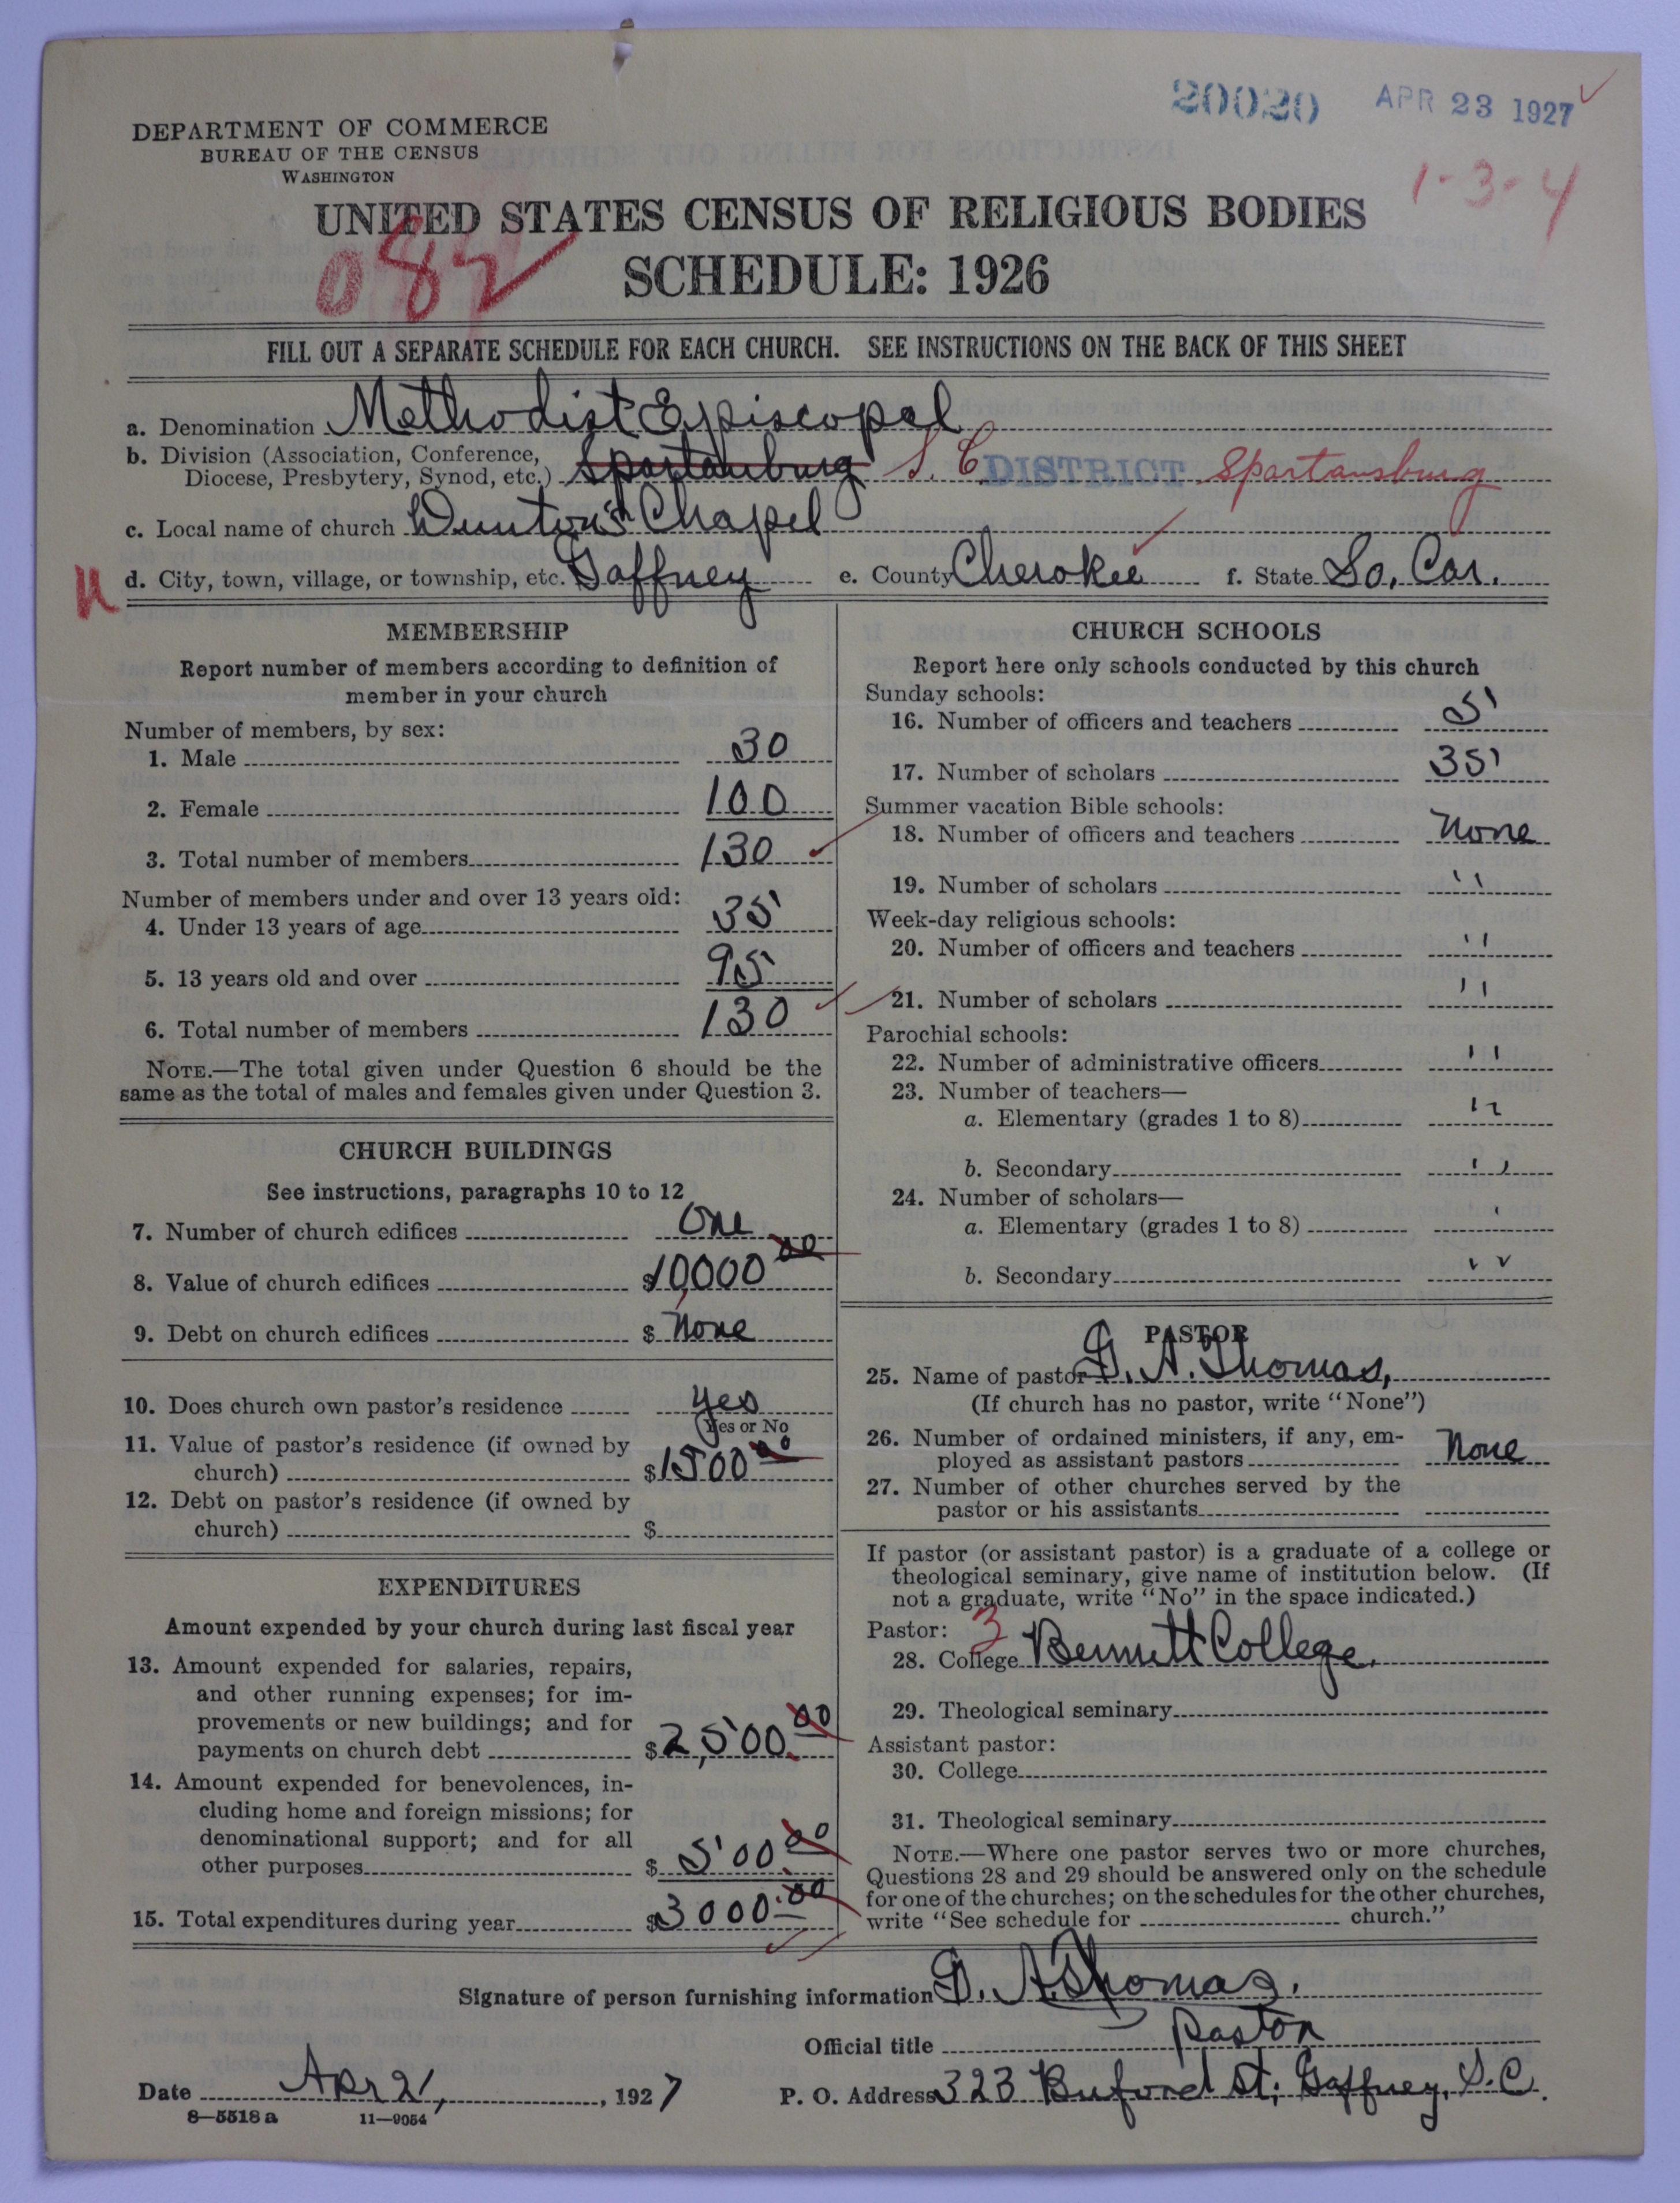 20020 APR 23 1927
DEPARTMENT OF COMMERCE
BUREAU OF THE CENSUS
WASHINGTON
1-3-4
UNITED STATES CENSUS OF RELIGIOUS BODIES
082
SCHEDULE: 1926
FILL OUT A SEPARATE SCHEDULE FOR EACH CHURCH. SEE INSTRUCTIONS ON THE BACK OF THIS SHEET
a. Denomination Methodist Episcopal
b. Division (Association, Conference,
Diocese, Presbytery, Synod, etc.) Spartanburg S. C. DISTRICT Spartansburg
c. Local name of church Chapel
d. City, town, village, or township, etc. Gaffney e. County Cherokee f. State So. Car.
MEMBERSHIP
Report number of members according to definition of
member in your church
Number of members, by sex:
1. Male 30
2. Female 100
3. Total number of members 130
Number of members under and over 13 years old:
4. Under 13 years of age 35
5. 13 years old and over 95
6. Total number of members 130
NOTE.—The total given under Question 6 should be the
same as the total of males and females given under Question 3.
CHURCH BUILDINGS
See instructions, paragraphs 10 to 12
7. Number of church edifices One
8. Value of church edifices $10,000 00
9. Debt on church edifices $ None
10. Does church own pastor's residence yes
Yes or No
11. Value of pastor's residence (if owned by
church) $1500 00
12. Debt on pastor's residence (if owned by
church) $
EXPENDITURES
Amount expended by your church during last fiscal year
13. Amount expended for salaries, repairs,
and other running expenses; for im-
provements or new buildings; and for
payments on church debt $2,500.00
14. Amount expended for benevolences, in-
cluding home and foreign missions; for
denominational support; and for all
other purposes $ 500.00
15. Total expenditures during year $3000.00
CHURCH SCHOOLS
Report here only schools conducted by this church
Sunday schools:
16. Number of officers and teachers 5
17. Number of scholars 35
Summer vacation Bible schools:
18. Number of officers and teachers None
19. Number of scholars "
Week-day religious schools:
20. Number of officers and teachers "
21. Number of scholars "
Parochial schools:
22. Number of administrative officers "
23. Number of teachers—
a. Elementary (grades 1 to 8) "
b. Secondary "
24. Number of scholars—
a. Elementary (grades 1 to 8) '
b. Secondary "
PASTOR
25. Name of pastor G. A. Thomas,
(If church has no pastor, write "None")
26. Number of ordained ministers, if any, em-
ployed as assistant pastors None
27. Number of other churches served by the
pastor or his assistants
If pastor (or assistant pastor) is a graduate of a college or
theological seminary, give name of institution below. (If
not a graduate, write "No" in the space indicated.)
Pastor: 3
28. College Bennett College.
29. Theological seminary
Assistant pastor:
30. College
31. Theological seminary
NOTE.—Where one pastor serves two or more churches,
Questions 28 and 29 should be answered only on the schedule
for one of the churches; on the schedules for the other churches,
write "See schedule for church."
Signature of person furnishing information G. A. Thomas.
Official title Pastor
Date Apr 21, 1927 P. O. Address 323 Buford St, Gaffney, S.C.
8—5518 a 11—9054